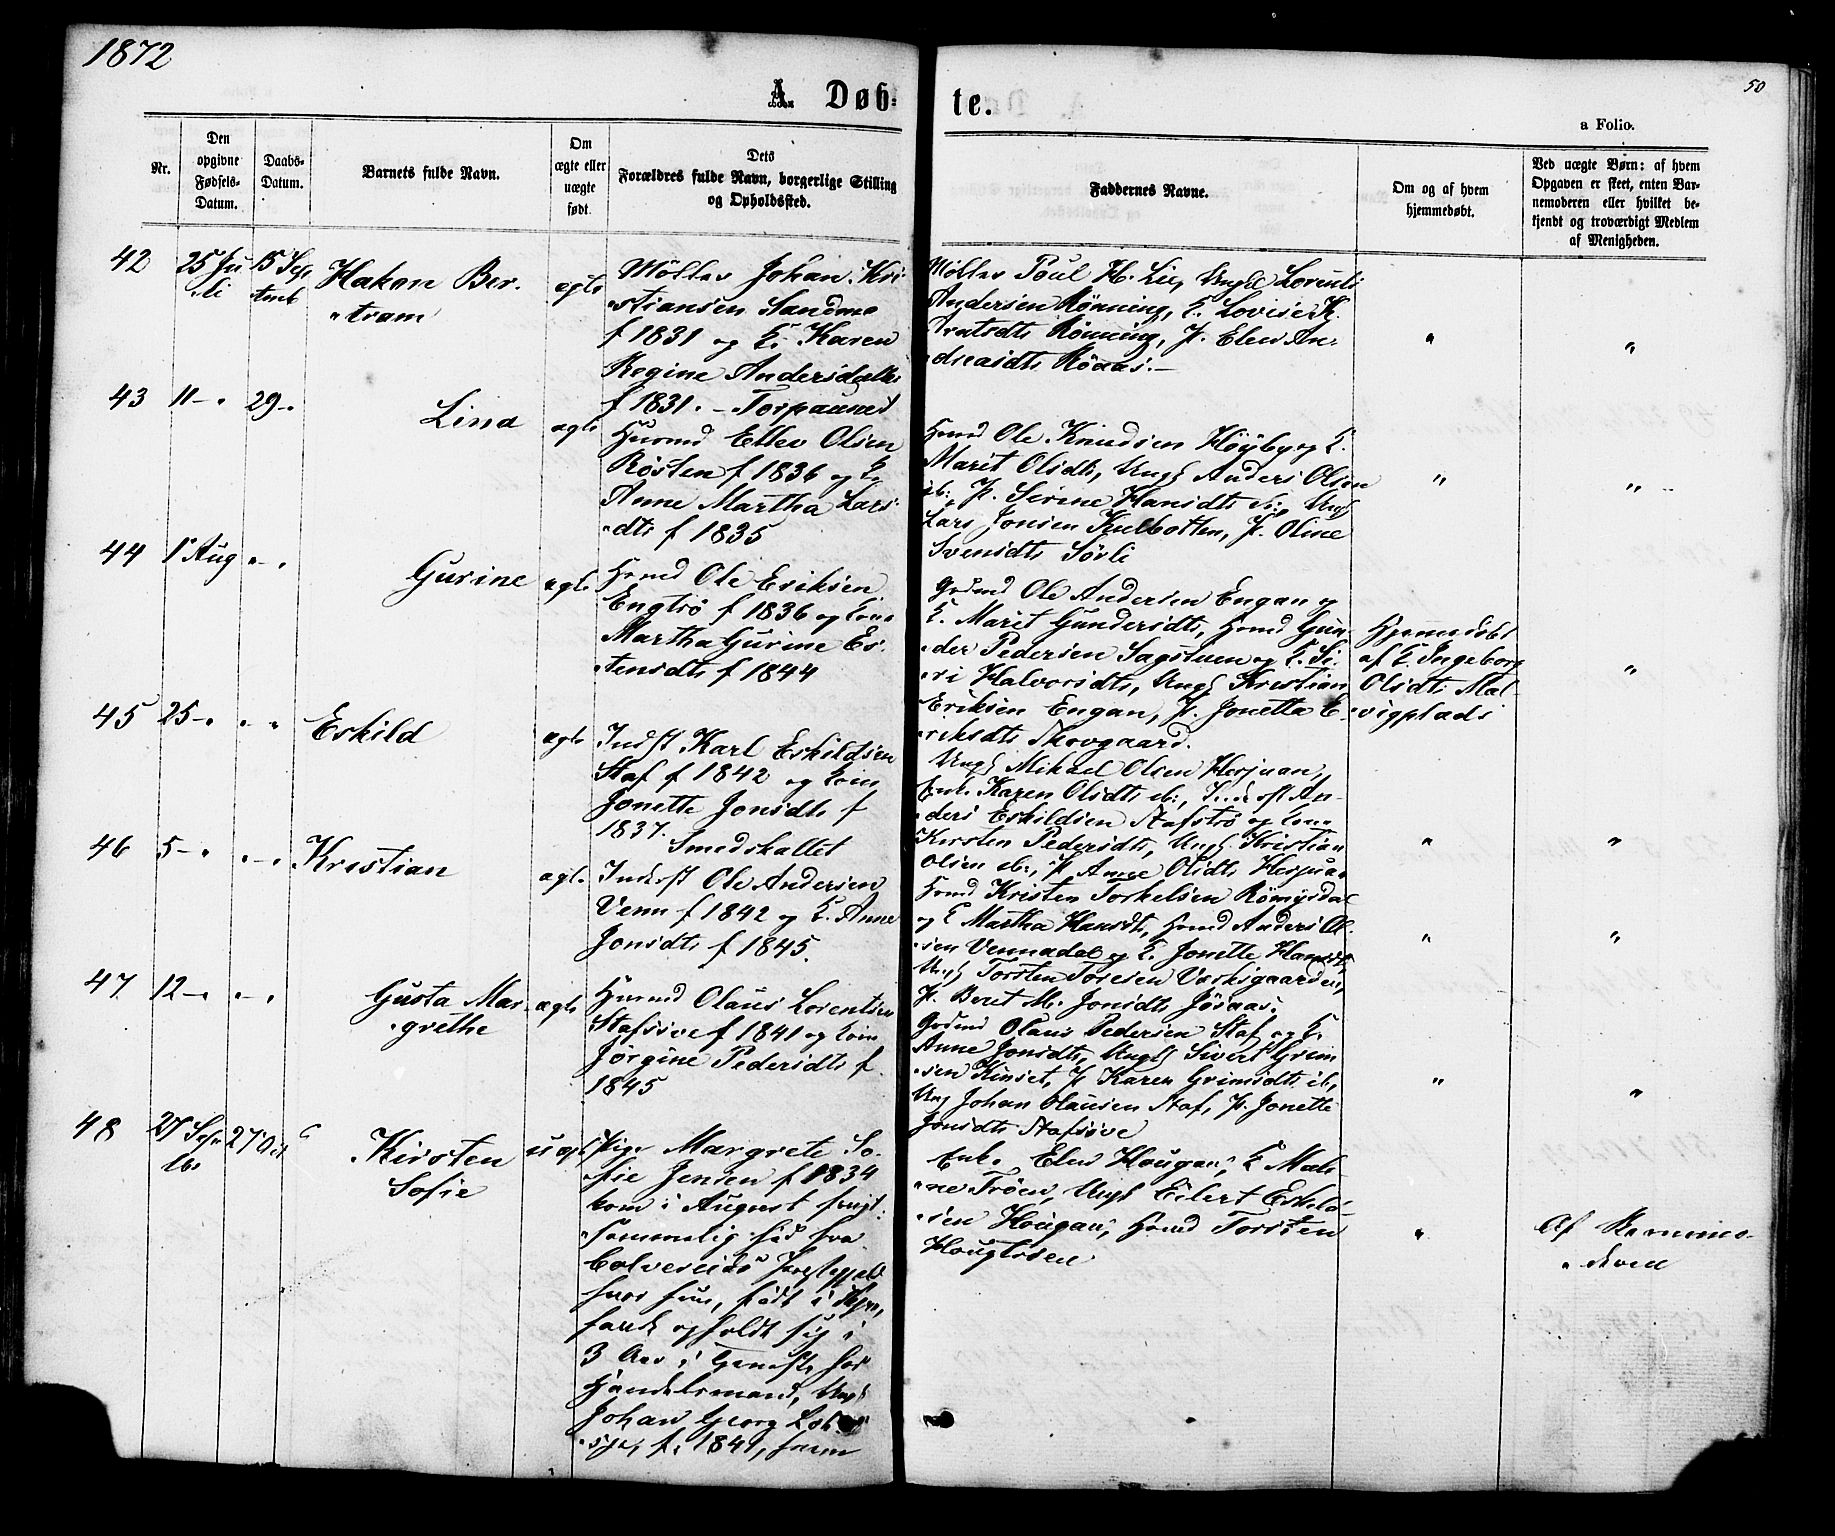 1872
50
A. Døb-
te.
a Folio.
Nr.
Den opgivne Fødsels-Datum.
Daabs-Datum.
Barnets fulde Navn.
Om ægte eller uægte født.
Dets Forældres fulde Navn, borgerlige Stilling og Opholdssted.
Faddernes Navne.
Om og af hvem hjemmedøbt.
Ved uægte Børn: af hvem Opgaven er skeet, enten Barnemoderen eller hvilket bekjendt og troværdigt Medlem af Menigheden.
42
25 Ju
li
15 Sep
temb
Hakon Ber-
tram
ægte
Møller Johan Kri
stiansen Sandmo
f 1831 og K. Karen
Regine Andersdatter
f 1831. – Torpaunet
Møller Poul H. Lie, Ungk Lorents
Andersen Rönning, K. Lovise K.
Rönning, P. Elen An-
dreasdt Röaas. –
"
"
43
11 – "
29 – "
Lina
ægte
Husmd Ellev Olsen
Rösten f 1836 og K
Anne Martha Lars
dt f 1835
Hmd Ole Knudsen Höyby og K.
Marit Olsdt, Ungk Anders Olsen
ib:, P. Serine Hansdt ib:, Ung
Lars Jonsen Kulbotten, P. Oline
Svensdt Sörli
"
"
44
1 Aug
" – "
Gurine
ægte
Hmd Ole Eriksen
Engtrö f 1836 og Kone
Martha Gurine Es-
tensdt f 1844
Grdmd Ole Andersen Engan og
K. Marit Gundersdt, Hmd Gun-
der Pedersen Sagstuen og K. Si-
ri Halvorsdt, Ungk Kristian
Eriksen Engan, P. Jonetta E-
riksdt Skovgaard.
Hjemmedöbt
af K. Ingeborg
Olsdt Mal-
vigplads
"
45
25 – "
" "
Eskild
ægte
Indst Karl Eskildsen
Staf f 1842 og Kone
Jonette Jonsdt f
1837. Smedshallet
Ungk Mikael Olsen Hesjuan,
Enke Karen Olsdt ib:, Inderst An-
ders Eskildsen Stafströ og Kone
Kirsten Pedersdt, Ungk Kristian
Olsen ib:, P. Anne Olsdt Hesjuan
"
"
46
5 – "
" – "
Kristian
ægte
Inderst Ole Andersen
Venn f 1842 og K. Anne
Jonsdt f 1845.
Hmd Kristen Torkelsen
og K Martha Hansdt, Hmd Anders Ol-
sen Vennadal og K. Jonette Hansdt,
Ungk Torsten Toresen
P. Beret M. Jonsdt Jösaas.
"
"
47
12 – "
" – "
Gusta Mar-
grethe
ægte
Husmd Olaus Lorentsen
Stafsöve f 1841 og Kone
Jörgine Pedersdt f.
1845
Grdmd Olaus Pedersen Staf og K.
Anne Jonsdt, Ungk Sivert Grim
sen Kinset, P Karen Grimsdt ib,
Ung Johan Olausen Staf, P. Jonette
Jonsdt Stafsöve
"
"
48
27 Sep
27 Oct
Kirsten
Sofie
uægte
Pige Margrete So-
fie Jensen f 1834
kom i August frugt-
sommelig hid fra
Kolvereids Præstegjeld
hvor hun, født i
og holdt sig i
3 Aar i Tjeneste hos
Handelsmand, Ungk
Johan Georg
f. 1841, som
Enke Elen Hougan, K Mali
ne Tröen, Ungk Eilert Eskild-
sen Hougan, Hmd Torsten
"
Af Barnemo-
deren